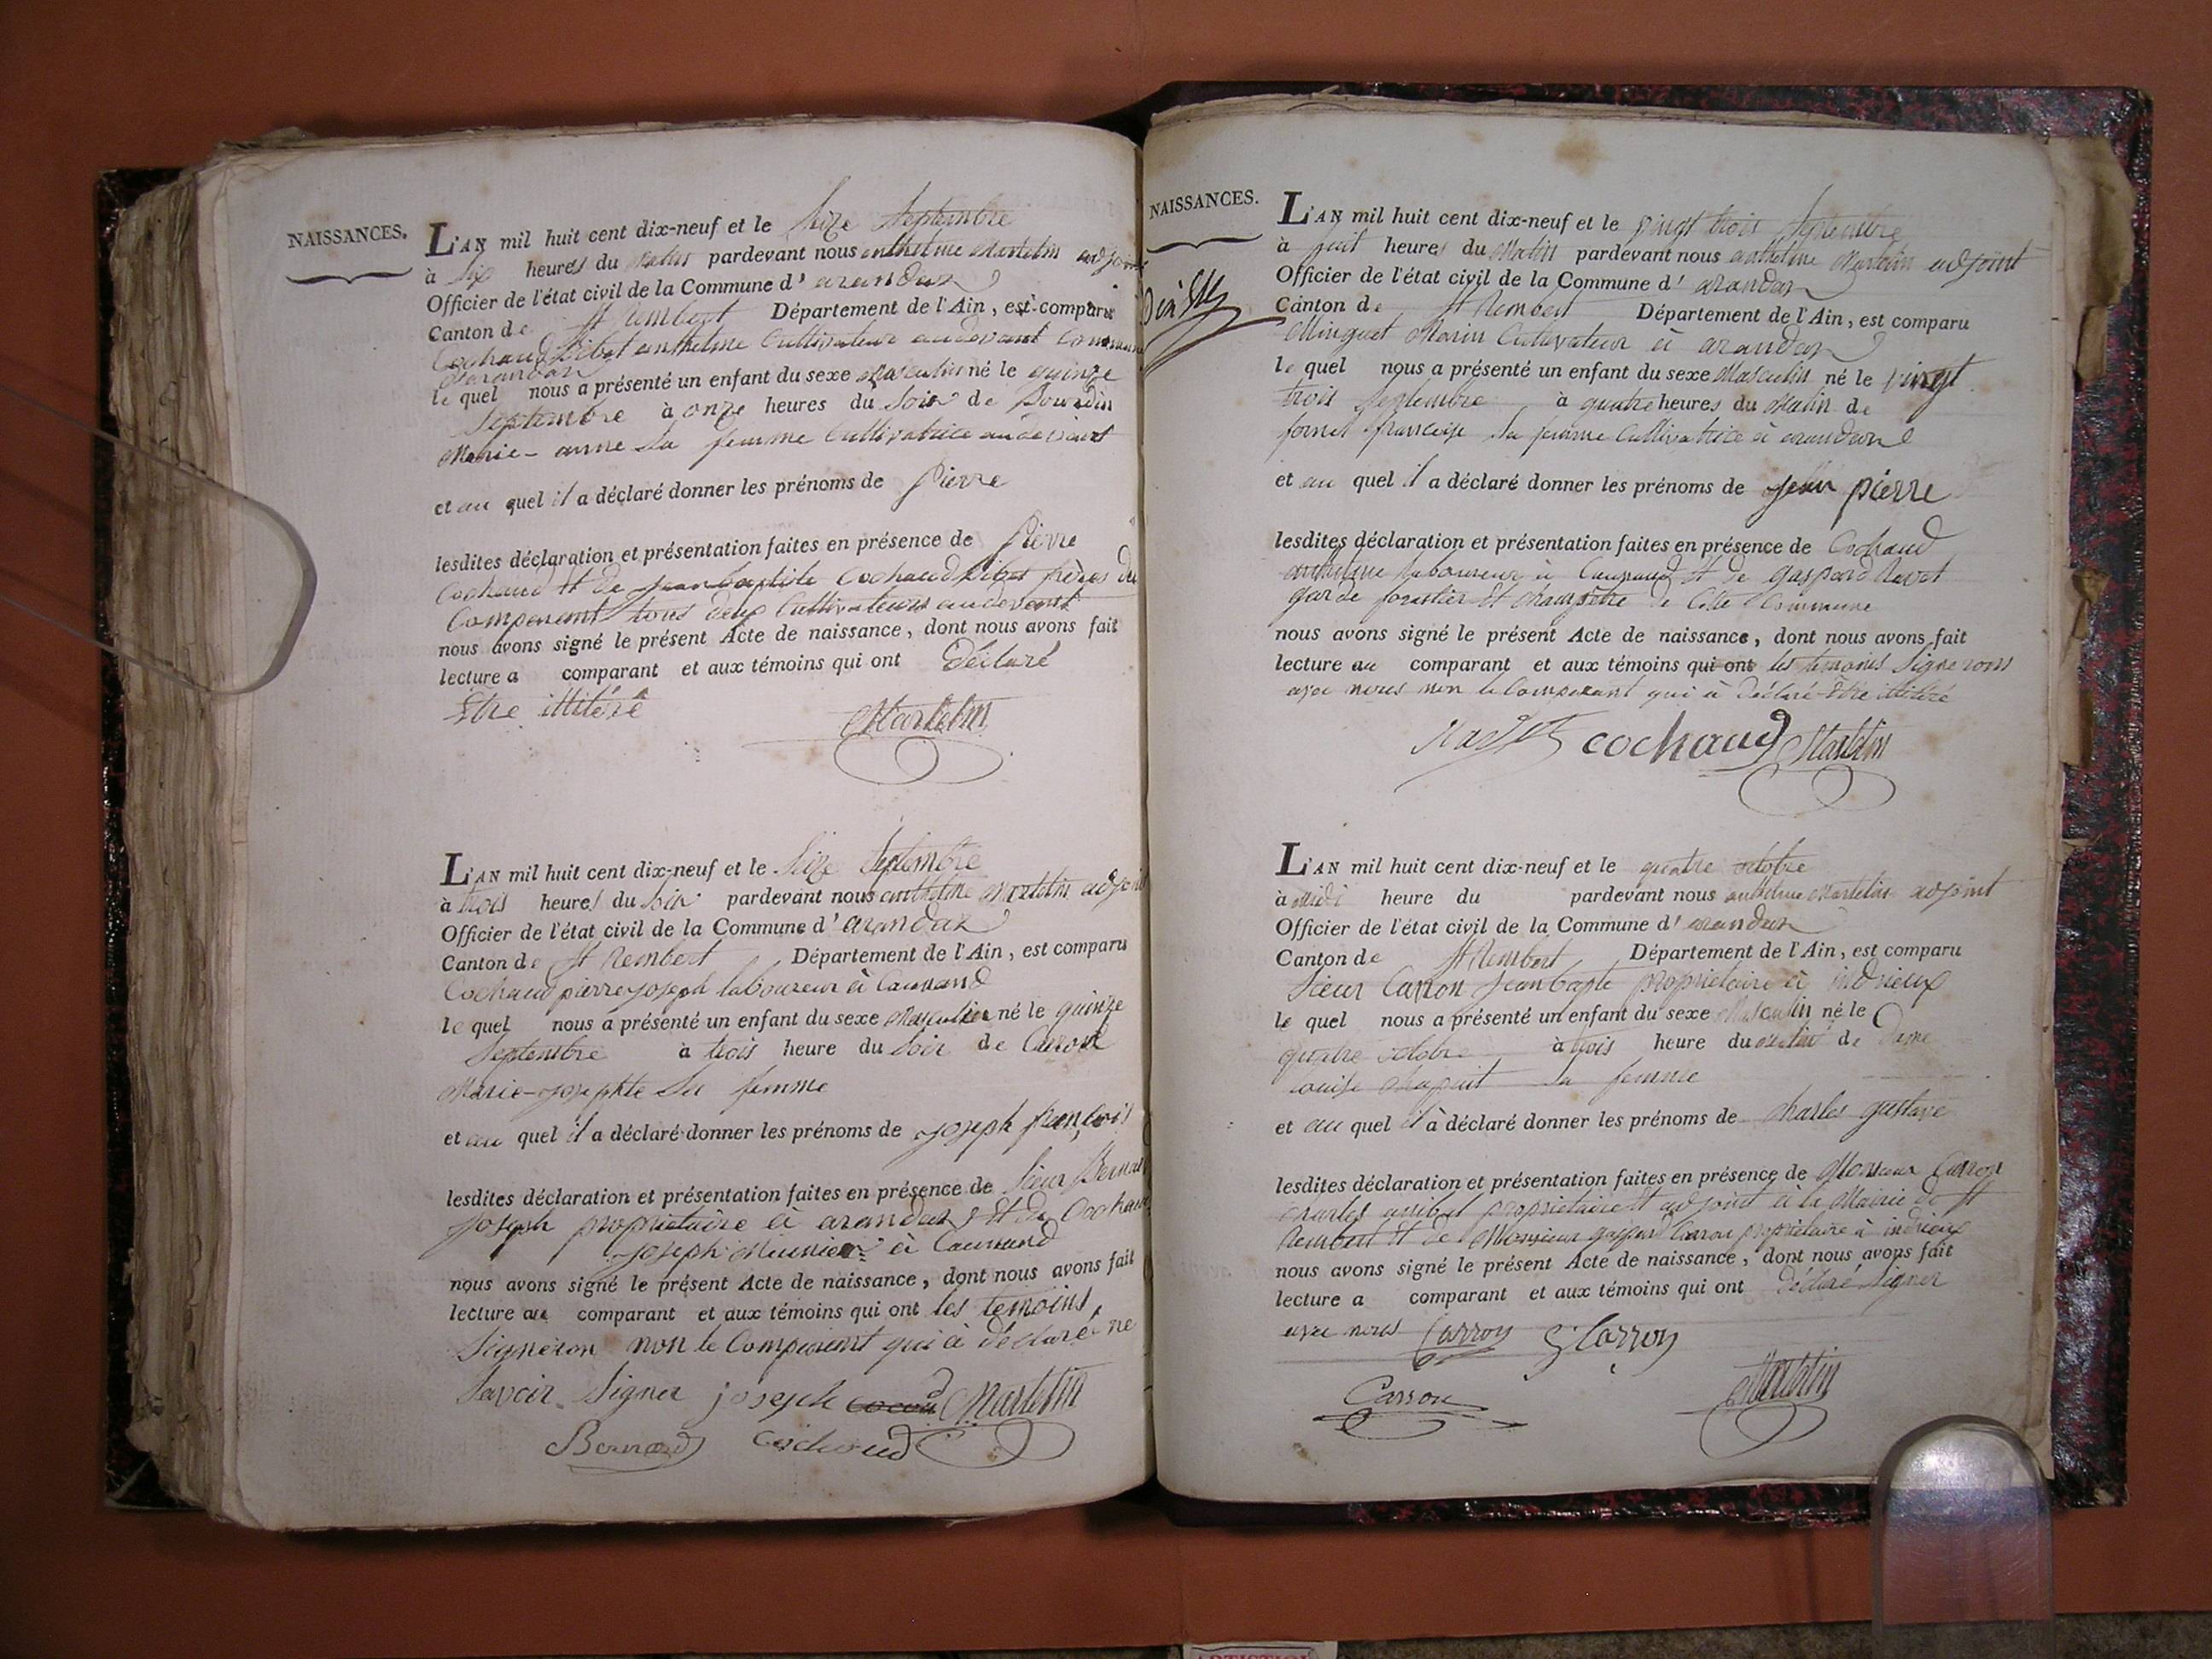 NAISSANCES.
L'AN mil huit cent dix-neuf et le seize septembre
à six heures du matin pardevant nous anthelme Martelin adjoint
Officier de l'état civil de la Commune d'arandas
Canton de St rembert Département de l'Ain, est comparu
Cochaud Bibet anthelme Cultivateur
d'arandas
le quel nous a présenté un enfant du sexe masculin né le quinze
septembre à onze heures du soir de Bourdin
Marie-anne sa femme Cultivatrice
et au quel il a déclaré donner les prénoms de Pierre
lesdites déclaration et présentation faites en présence de Pierre
Cochaud et de jean baptiste Cochaud Bibet frères du
Comparant tous deux Cultivateurs
nous avons signé le présent Acte de naissance, dont nous avons fait
lecture a comparant et aux témoins qui ont déclaré
être illitéré
Martelin
L'AN mil huit cent dix-neuf et le seize septembre
à trois heures du soir pardevant nous anthelme Martelin adjoint
Officier de l'état civil de la Commune d'arandas
Canton de St Rembert Département de l'Ain, est comparu
Cochaud pierre joseph laboureur à
le quel nous a présenté un enfant du sexe masculin né le quinze
septembre à trois heure du soir de
Marie-josephte sa femme
et au quel il a déclaré donner les prénoms de joseph françois
lesdites déclaration et présentation faites en présence de sieur Bernard
joseph propriétaire à arandas et de Cochaud
joseph Meunier à
nous avons signé le présent Acte de naissance, dont nous avons fait
lecture au comparant et aux témoins qui ont les temoins
signeron non le Comparant qui à déclaré ne
savoir signer joseph cocau Martelin
Bernard cochaud
NAISSANCES.
L'AN mil huit cent dix-neuf et le vingt trois septembre
à huit heures du Matin pardevant nous anthelme Martelin adjoint
Officier de l'état civil de la Commune d'arandas
Canton de St Rembert Département de l'Ain, est comparu
Minguet Marin Cultivateur à arandas
le quel nous a présenté un enfant du sexe Masculin né le vingt
trois septembre à quatre heures du Matin de
françoise sa femme Cultivatrice à arandas
et au quel il a déclaré donner les prénoms de jean pierre
lesdites déclaration et présentation faites en présence de Cochaud
anthelme laboureur à et de gaspard
garde forestier et champêtre de Cette Commune
nous avons signé le présent Acte de naissance, dont nous avons fait
lecture au comparant et aux témoins qui ont les temoins signerons
avec nous non le Comparant qui à déclaré être illitéré
cochaud Martelin
L'AN mil huit cent dix-neuf et le quatre octobre
à midi heure du pardevant nous anthelme Martelin adjoint
Officier de l'état civil de la Commune d'arandas
Canton de St Rembert Département de l'Ain, est comparu
sieur Carron jean bapte propriétaire à indrieux
le quel nous a présenté un enfant du sexe Masculin né le
quatre octobre à trois heure du matin de Dame
louise chapuit sa femme
et au quel il à déclaré donner les prénoms de charles gustave
lesdites déclaration et présentation faites en présence de Monsieur Carron
charles anibal propriétaire et adjoint à la Mairie de St
Rembert et de Monsieur gaspard Carron propriétaire à indrieux
nous avons signé le présent Acte de naissance, dont nous avons fait
lecture a comparant et aux témoins qui ont déclaré signer
avec nous Carron G. Carron
Carron Martelin